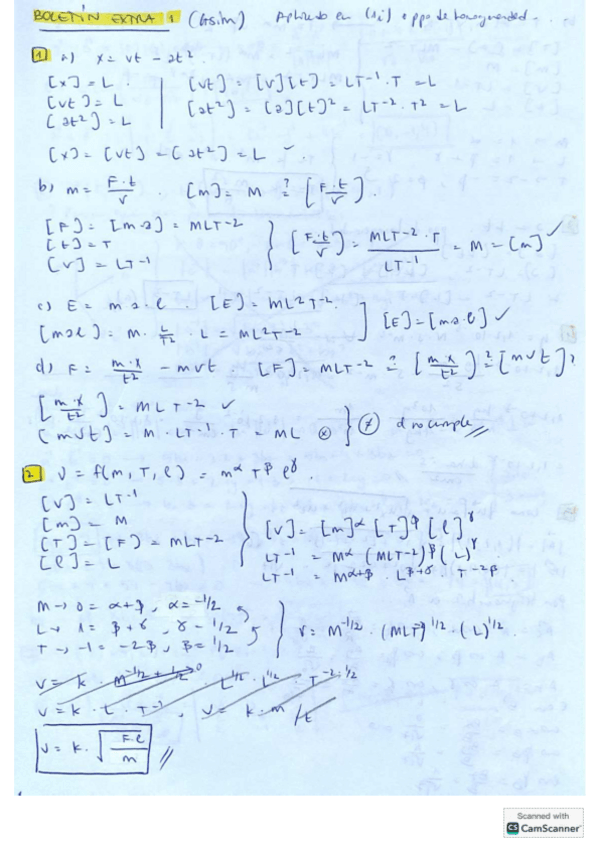 BOLETÍN EXTRA 1 (Asim) Aplicando en (Si) o ppo de homogeneidad.
1 a) x = vt - at².
[x] = L.
[vt] = L
[at²] = L
[vt] = [v][t] = LT⁻¹ · T = L
[at²] = [a][t]² = LT⁻² · T² = L
[x] = [vt] - [at²] = L ✓.
b) m = F·t/v . [m] = M ≟ [F·t/v].
[F] = [m·a] = MLT⁻²
[t] = T
[v] = LT⁻¹
} [F·t/v] = MLT⁻² · T / LT⁻¹ = M = [m] ✓
c) E = m·a·l. [E] = ML²T⁻².
[mal] = M · L/T² · L = ML²T⁻²
] [E] = [m·a·l] ✓
d) F = m·x/t² - mvt. [F] = MLT⁻² ≟ [m·x/t²] ≟ [mvt]?
[m·x/t²] = MLT⁻² ✓
[mvt] = M · LT⁻¹ · T = ML ⊗
} ≠ d no cumple
2 v = f(m, T, l) = mᵅ Tᵝ lᵞ.
[v] = LT⁻¹
[m] = M
[T] = [F] = MLT⁻²
[l] = L
[v] = [m]ᵅ [T]ᵝ [l]ᵞ
LT⁻¹ = Mᵅ (MLT⁻²)ᵝ (L)ᵞ
LT⁻¹ = Mᵅ⁺ᵝ · Lᵝ⁺ᵞ · T⁻²ᵝ.
M → 0 = α+β, α = -1/2
L → 1 = β+γ, γ = 1/2
T → -1 = -2β, β = 1/2
} v = M^-1/2 · (MLT⁻²)^1/2 · (L)^1/2.
v = k · M^-1/2 + 1/2 0 · L^1/2 · L^1/2 · T^-2·1/2
v = k · L · T⁻¹, v = k · m/t
v = k · √(F·l/m)
Scanned with
CS CamScanner